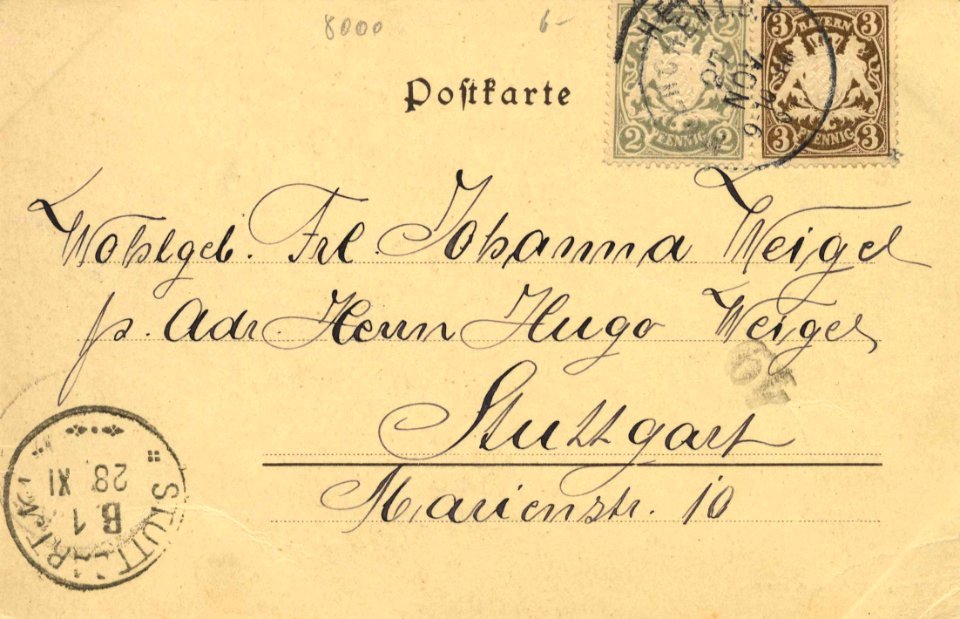 8000 6-
Postkarte
BAYERN
2 PFENNIG 2
3 3
BAYERN
3 PFENNIG 3
27 NOV
Wohlgeb. Frl. Johanna Weigel
p. Adr. Herrn Hugo Weigel
Stuttgart
Marienstr. 10
STUTT
B 1
28 XI